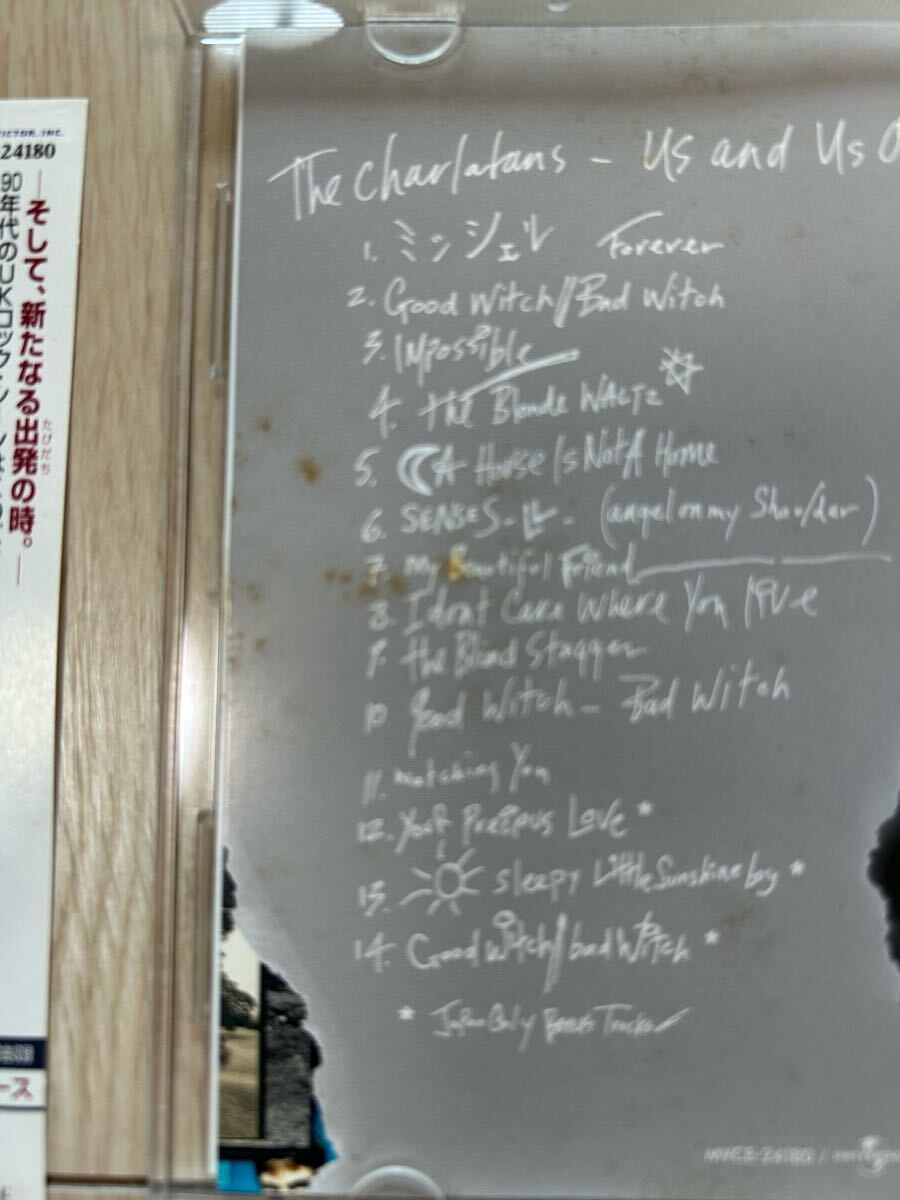 VICTOR, INC.
24180
―そして、新たなる出発の時。―
たびだち
90年代のUKロック・シーンは
The Charlatans - Us and Us O
1. ミッシェル Forever
2. Good Witch//Bad Witch
3. Impossible
4. the Blonde Waltz
5. A House Is Not A Home
6. SENSES - (angel on my Shoulder)
7. My Beautiful Friend
8. I dont Care Where You live
9. the Blind Stagger
10 good Witch - Bad Witch
11. watching You
12. Your Precious Love *
13. sleepy Little Sunshine boy *
14. Good witch//bad witch *
* Japan Only Bonus Tracks
MVCE-24180 /
ース